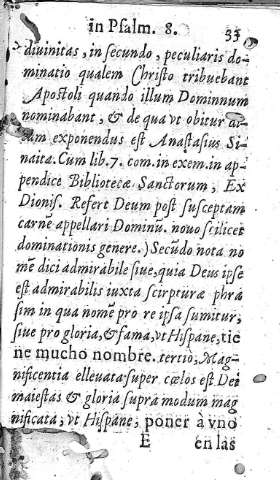 in Psalm. 8. 33
divinitas, in secundo, peculiaris do-
minatio qualem Christo tribuebant
Apostoli quando illum Dominnum
nominabant, & de qua vt obitur
exponendus est Anastasius Si-
naita. Cum lib. 7. com. in exem. in ap-
pendice Bibliotecæ Sanctorum, Ex
Dionis. Refert Deum post susceptam
carnẽ appellari Dominũ. nouo scilicet
dominationis genere.) Secũdo nota no
mẽ dici admirabile siue, quia Deus ipse
est admirabilis iuxta scirpturæ phra
sim in qua nomẽ pro re ipsa sumitur,
siue pro gloria, & fama, vt Hispane, tie
ne mucho nombre. tertio, Mag-
nificentia elleuata super cœlos est Dei
maiestas & gloria supra modum mag
nificata, vt Hispane, poner à vno
E en las